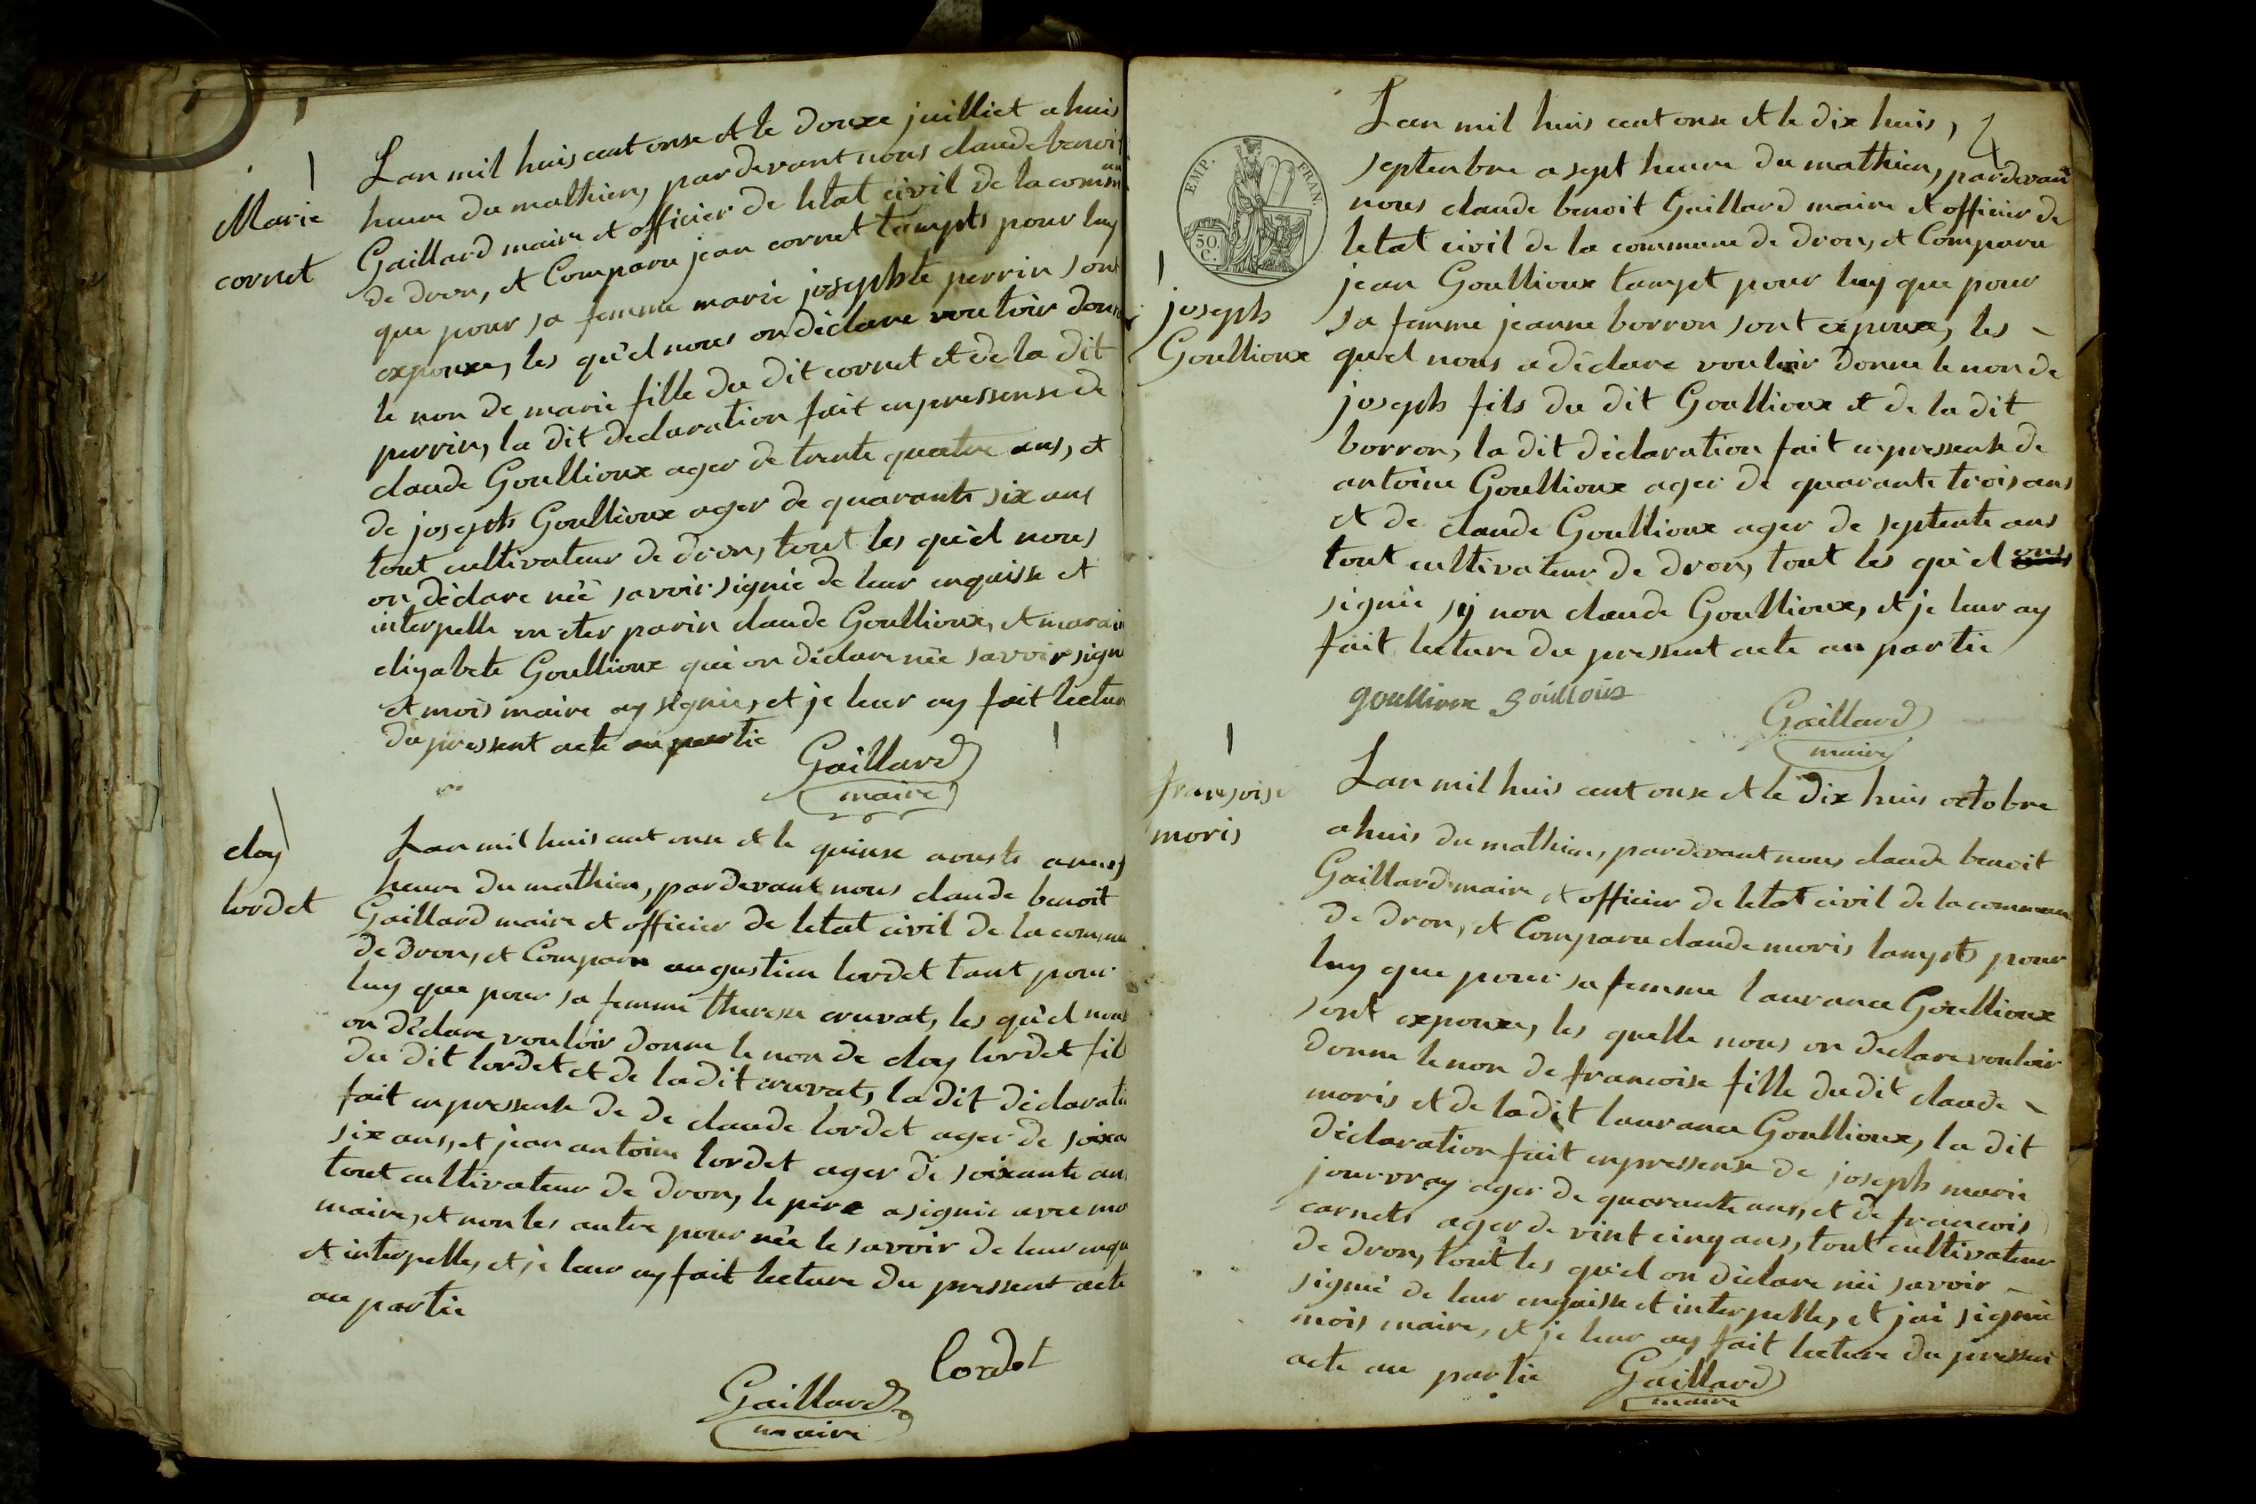 Marie
cornet
Lan mil huis cent onse et le douze juilliet a huis
heure du mathien, pardevant nous claude benoit
Gaillard maire et officier de letat civil de la comm
de dron, et Comparu jean cornet tampts pour luy
que pour sa femme marie josephte perrin sont
expouxe, les qu'el nous on déclare vouloir donn
le non de marie fille du dit cornet et de la dit
perrin, la dit declaration fait enpressense de
claude Goullioux ager de trente quatre ans, et
de joseph Goullioux ager de quarante six ans
tout cultivateur de dron, tout les qu'el nous
on déclare néé savoir signié de leur enquisse et
interpelle parin claude Goullioux, et marain
elizabete Goullioux qui on déclare néé savoir sign
et mois maire ay signié, et je leur ay fait lectur
du pressent acte au partie
Gaillard
maire
eloy
lordet
Lan mil huis cent onse et le quinse aouste a neuf
heure du mathien, pardevant nous claude benoit
Gaillard maire et officier de letat civil de la commu
de dron, et Comparu augustien lordet tant pour
luy que pour sa femme therese cruvat, les qu'el nous
on déclare vouloir donne le non de eloy lordet fils
du dit lordet et de la dit cruvat, la dit déclarati
fait enpressense de de claude lordet ager de soixa
six ans, et jean antoine lordet ager de soixante ans
tout cultivateur de dron, le père a signié avec mo
maire, et non les autre pour néé le savoir de leur enqu
et interpelle, et je leur ay fait lecture du pressent acte
au partie
lordet
Gaillard
maire
4
EMP. FRAN.
50.
C.
joseph
Goullioux
Lan mil huis cent onse et le dix huis,
septenbre a sept heure du mathien, pardevan
nous claude benoit Gaillard maire et officier de
letat civil de la commune de dron, et Comparu
jean Goullioux tampt pour luy que pour
sa femme jeanne borron sont expouxe, les
quel nous a déclare vouloir donne le non de
joseph fils du dit Goullioux et de la dit
borron, la dit déclaration fait enpressense de
antoine Goullioux ager de quarante trois ans
et de claude Goullioux ager de septente ans
tout cultivateur de dron, tout les qu'el ons
signié sy non claude Goullioux, et je leur ay
fait lecture du pressent acte au partie
goullioux goullioux
Gaillard
maire
francoise
moris
Lan mil huis cent onse et le dix huis octobre
a huis du mathien, pardevant nous claude benoit
Gaillard maire et officier de letat civil de la commun
de dron, et Comparu claude moris tampts pour
luy que pour sa femme laurance Goullioux
sont expouxe, les quelle nous on declare vouloir
donne le non de francoise fille du dit claude
moris et de la dit laurance Goullioux, la dit
déclaration fait enpressense de joseph marie
jourvray ager de quarante ans, et de francois
carnets ager de vint cinq ans, tout cultivateur
de dron, tout les qu'el on déclare néé savoir
signié de leur enquisse et interpelle, et jai signié
mois maire, et je leur ay fait lecture du pressen
acte au partie
Gaillard
maire